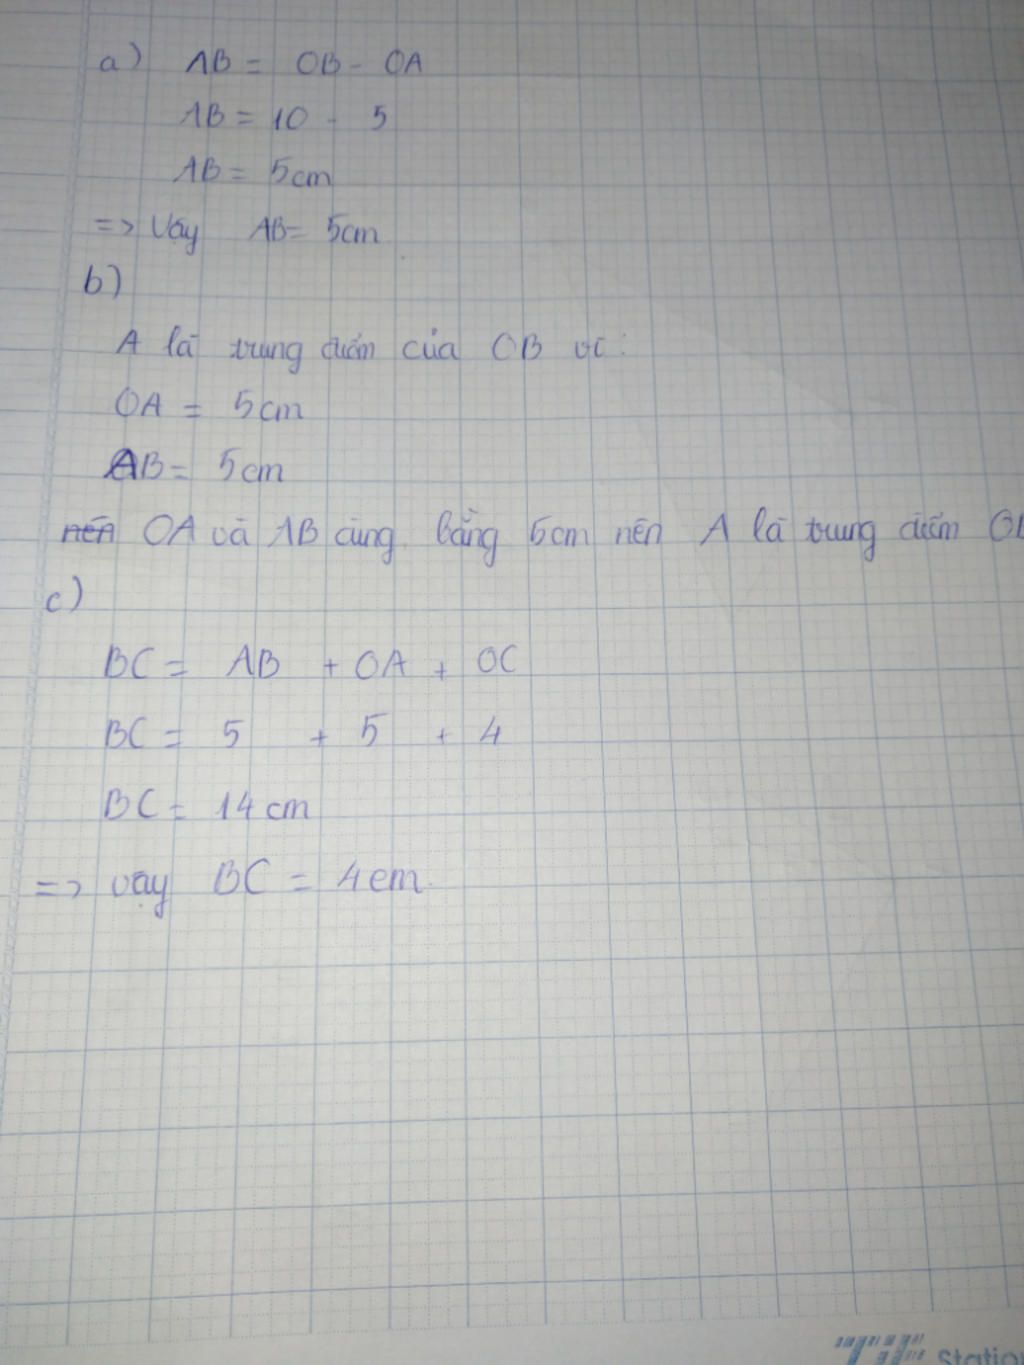 a) AB = OB - OA
AB = 10 - 5
AB = 5cm
=> Vậy AB = 5cm
b)
A là trung điểm của OB vì:
OA = 5cm
AB = 5cm
nên OA và AB cùng bằng 5cm nên A là trung điểm
c)
BC = AB + OA + OC
BC = 5 + 5 + 4
BC = 14 cm
=> vậy BC = 4cm